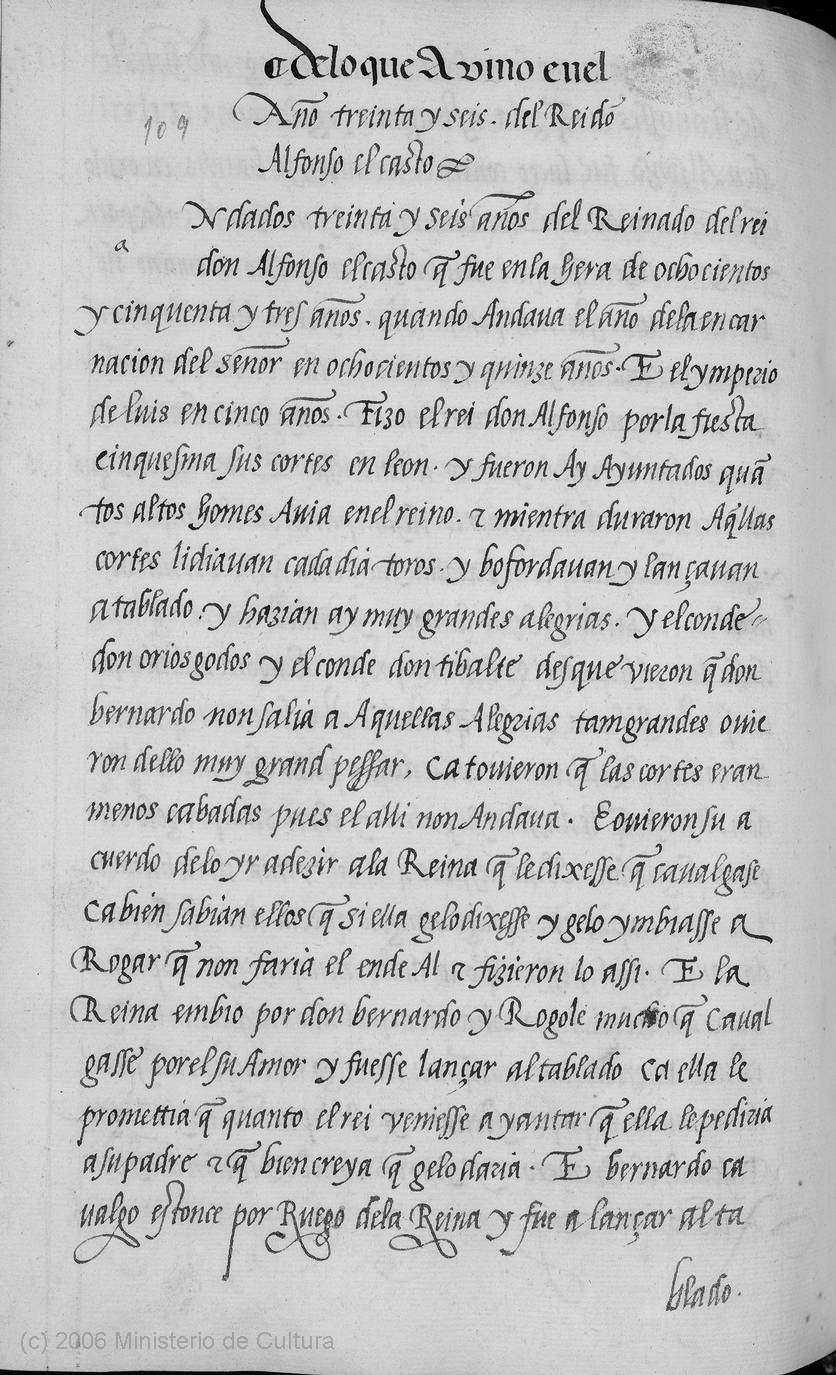 ¶ de lo que Avino en el
Año treinta y seis. del Rei dõ
Alfonso el casto
109
Ndados treinta y seis años del Reinado del rei
a
don Alfonso el casto q̃ fue en la hera de ochocientos
y cinquenta y tres años. quando Andaua el año dela encar
nacion del señor en ochocientos y quinze años. E el ymperio
de luis en cinco años. Fizo el rei don Alfonso por la fiesta
cinquesma sus cortes en leon. y fueron Ay Ayuntados quã
tos altos homes Auia en el reino. ⁊ mientra duraron Aq̃llas
cortes lidiauan cada dia toros. y bofordauan y lançauan
a tablado. y hazian ay muy grandes alegrias. y el conde
don orios godos y el conde don tibalte desque vieron q̃ don
bernardo non salia a Aquellas Alegrias tam grandes ouie
ron dello muy grand pessar, ca touieron q̃ las cortes eran
menos cabadas pues el alli non Andaua. E ouieron su a
cuerdo de lo yr a dezir a la Reina q̃ le dixesse q̃ caualgase
Ca bien sabian ellos q̃ si ella gelo dixesse y gelo ymbiasse a
Rogar q̃ non faria el ende Al ⁊ fizieron lo assi. E la
Reina embio por don bernardo y Rogole mucho q̃ Caual
gasse por el su Amor y fuesse lançar al tablado Ca ella le
promettia q̃ quanto el rei veniesse a yantar q̃ ella le pediria
a su padre ⁊ q̃ bien creya q̃ gelo daria. E bernardo ca
ualgo estonce por Ruego dela Reina y fue a lançar al ta
blado.
(c) 2006 Ministerio de Cultura